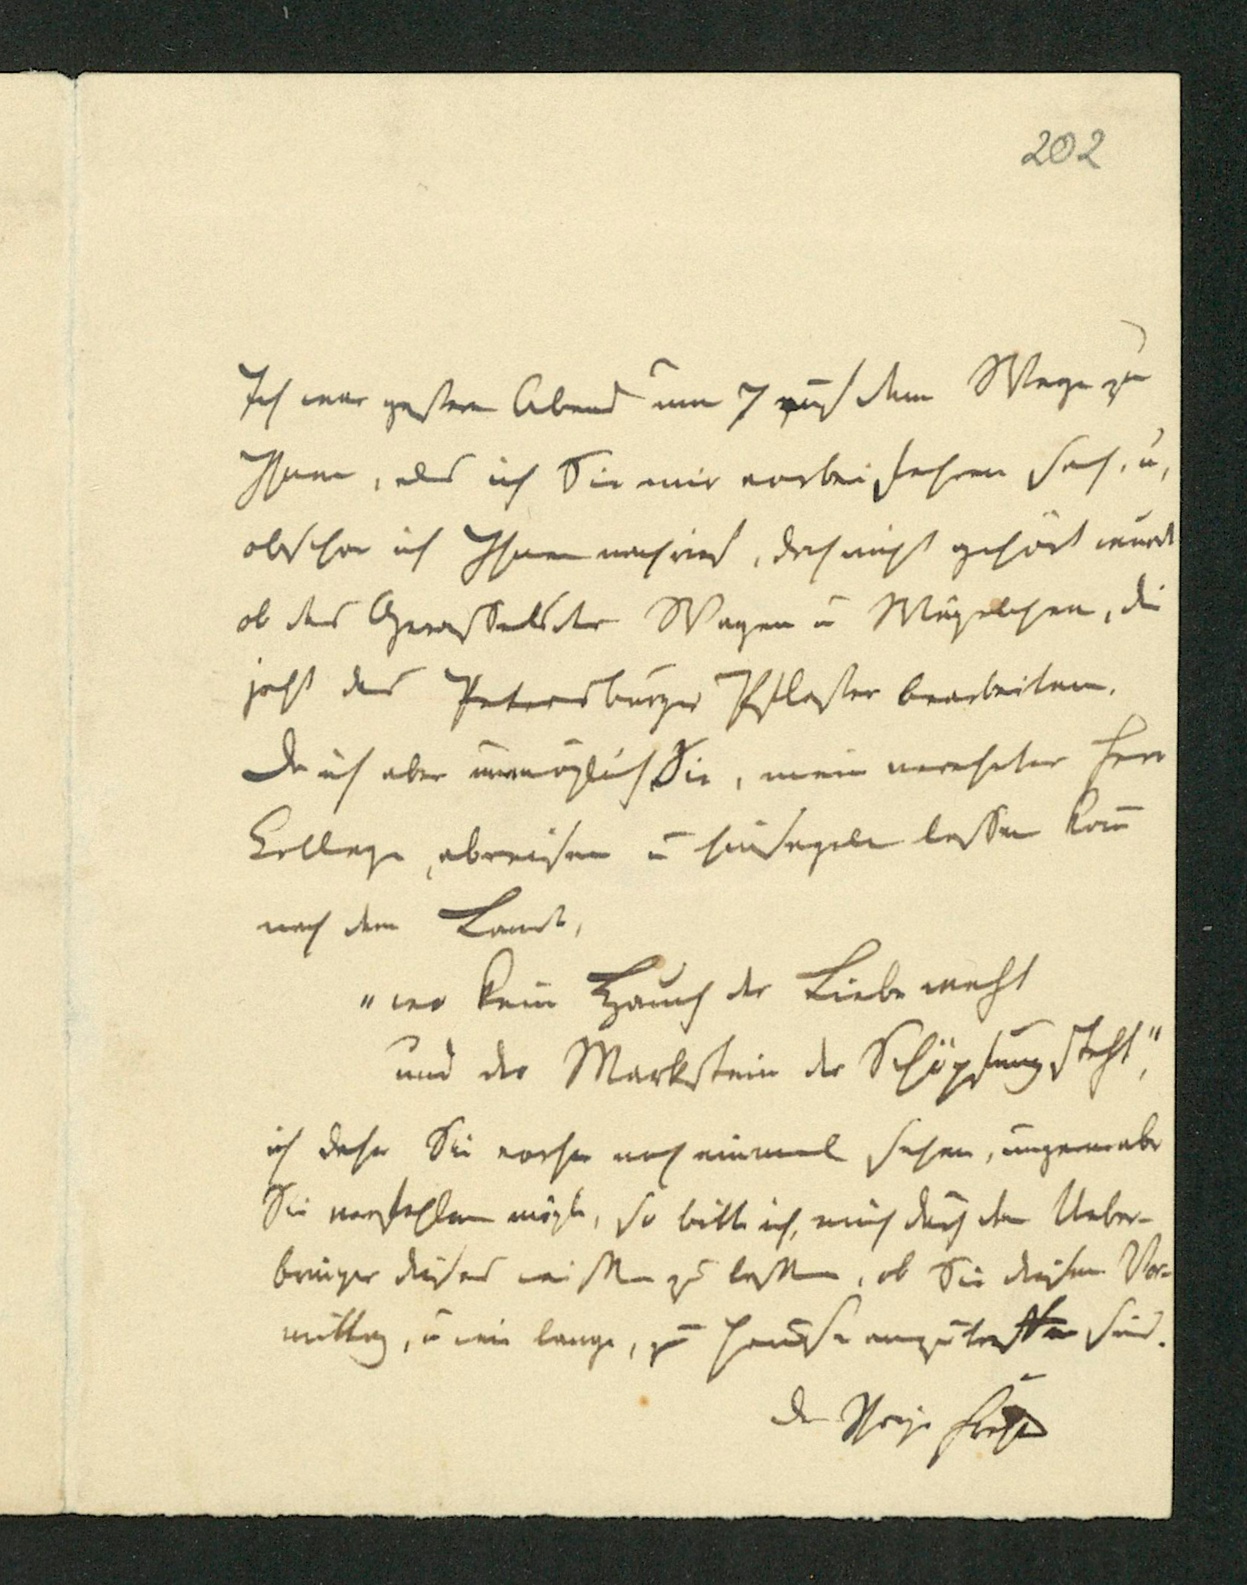 202
Ich war gestern Abend um 7 auf dem Wege zu
Ihnen, als ich Sie mir vorbei fahren sah, u,
obschon ich Ihnen nachrief, doch nicht gehört wurde
ob des Gerassels der Wagen u Wägelchen, die
jetzt das Petersburger Pflaster bearbeiten.
Da ich aber unmöglich Sie, mein verehrter Herr
College, abreisen u hinsegeln lassen kann
nach dem Lande,
"wo kein Hauch der Liebe weht
und der Markstein der Schöpfung steht",
ich daher Sie vorher noch einmal sehen, ungern aber
Sie verfehlen möchte, so bitte ich, mich durch den Ueber-
bringer dieses wissen zu lassen, ob Sie diesen Vor-
mittag, u wie lange, zu Hause anzutreffen sind.
Der Ihrige